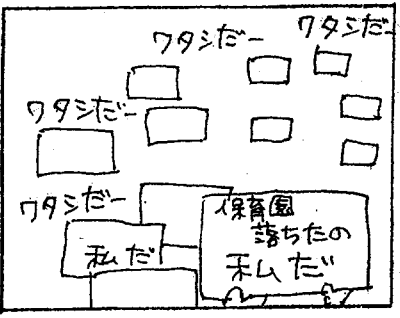 ワタシだー
ワタシだー
ワタシだー
ワタシだー
私だ
保育園
落ちたの
私だ